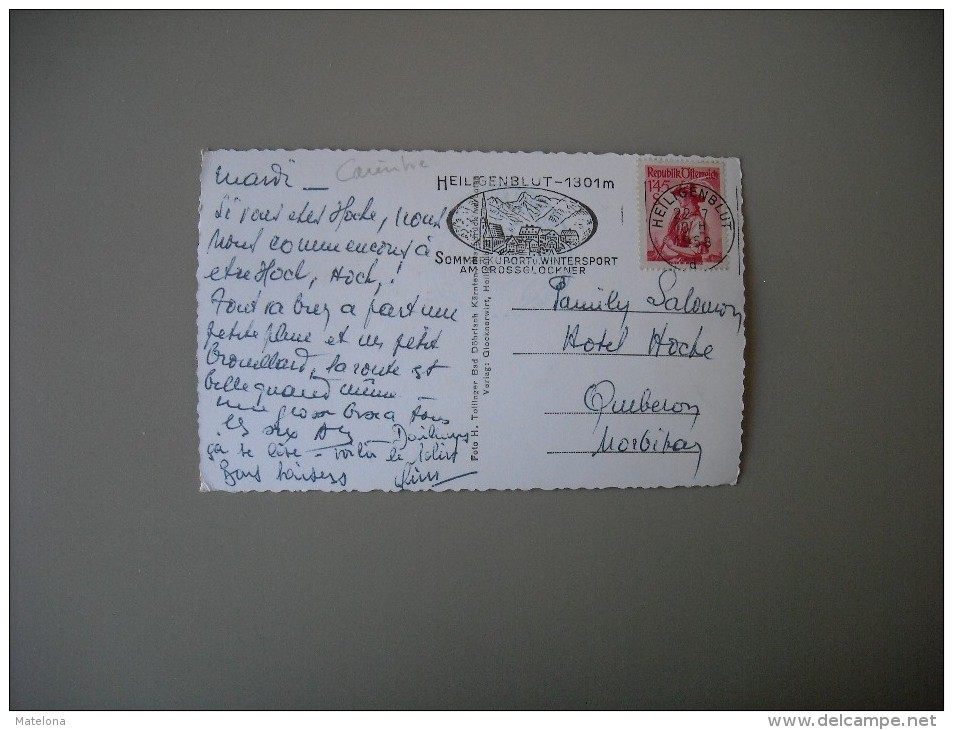 Mardi _
Carinthie
Si vous etes Hoche, nous
nous commençons à
etre Hoch, Hoch,!
Tout va bien a part une
petite pluie et un petit
brouillard, la route est
belle quand même _
une grosse bise a tous
les six
ça se lire - voilà le
Bons baisers
HEILIGENBLUT-1301m
SOMMERKURORT U. WINTERSPORT
AM GROSSGLOCKNER
Republik Österreich
1.45
HEILIGENBLUT
22.7
Foto H. Tollinger Bad Döhrlach Kärnten
Verlag: Glocknerwirt, Heiligenblut
Family Salomon
Hotel Hoche
Quiberon
Morbihan
Matelona
http://www.delcampe.net